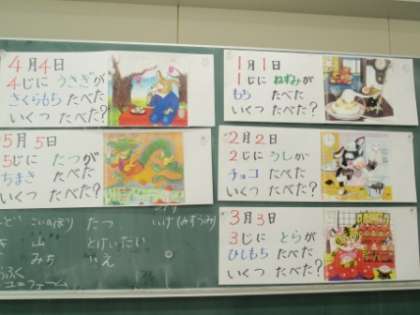 4月4日
4じに うさぎが
さくらもち たべた
いくつ たべた?
5月5日
5じに たつが
ちまき たべた
いくつ たべた?
1月1日
1じに ねずみが
もち たべた
いくつ たべた?
2月2日
2じに うしが
チョコ たべた
いくつ たべた?
3月3日
3じに とらが
ひしもち たべた
いくつ たべた?
こいのぼり たつ いけ(みずうみ)
みち
ユニフォーム